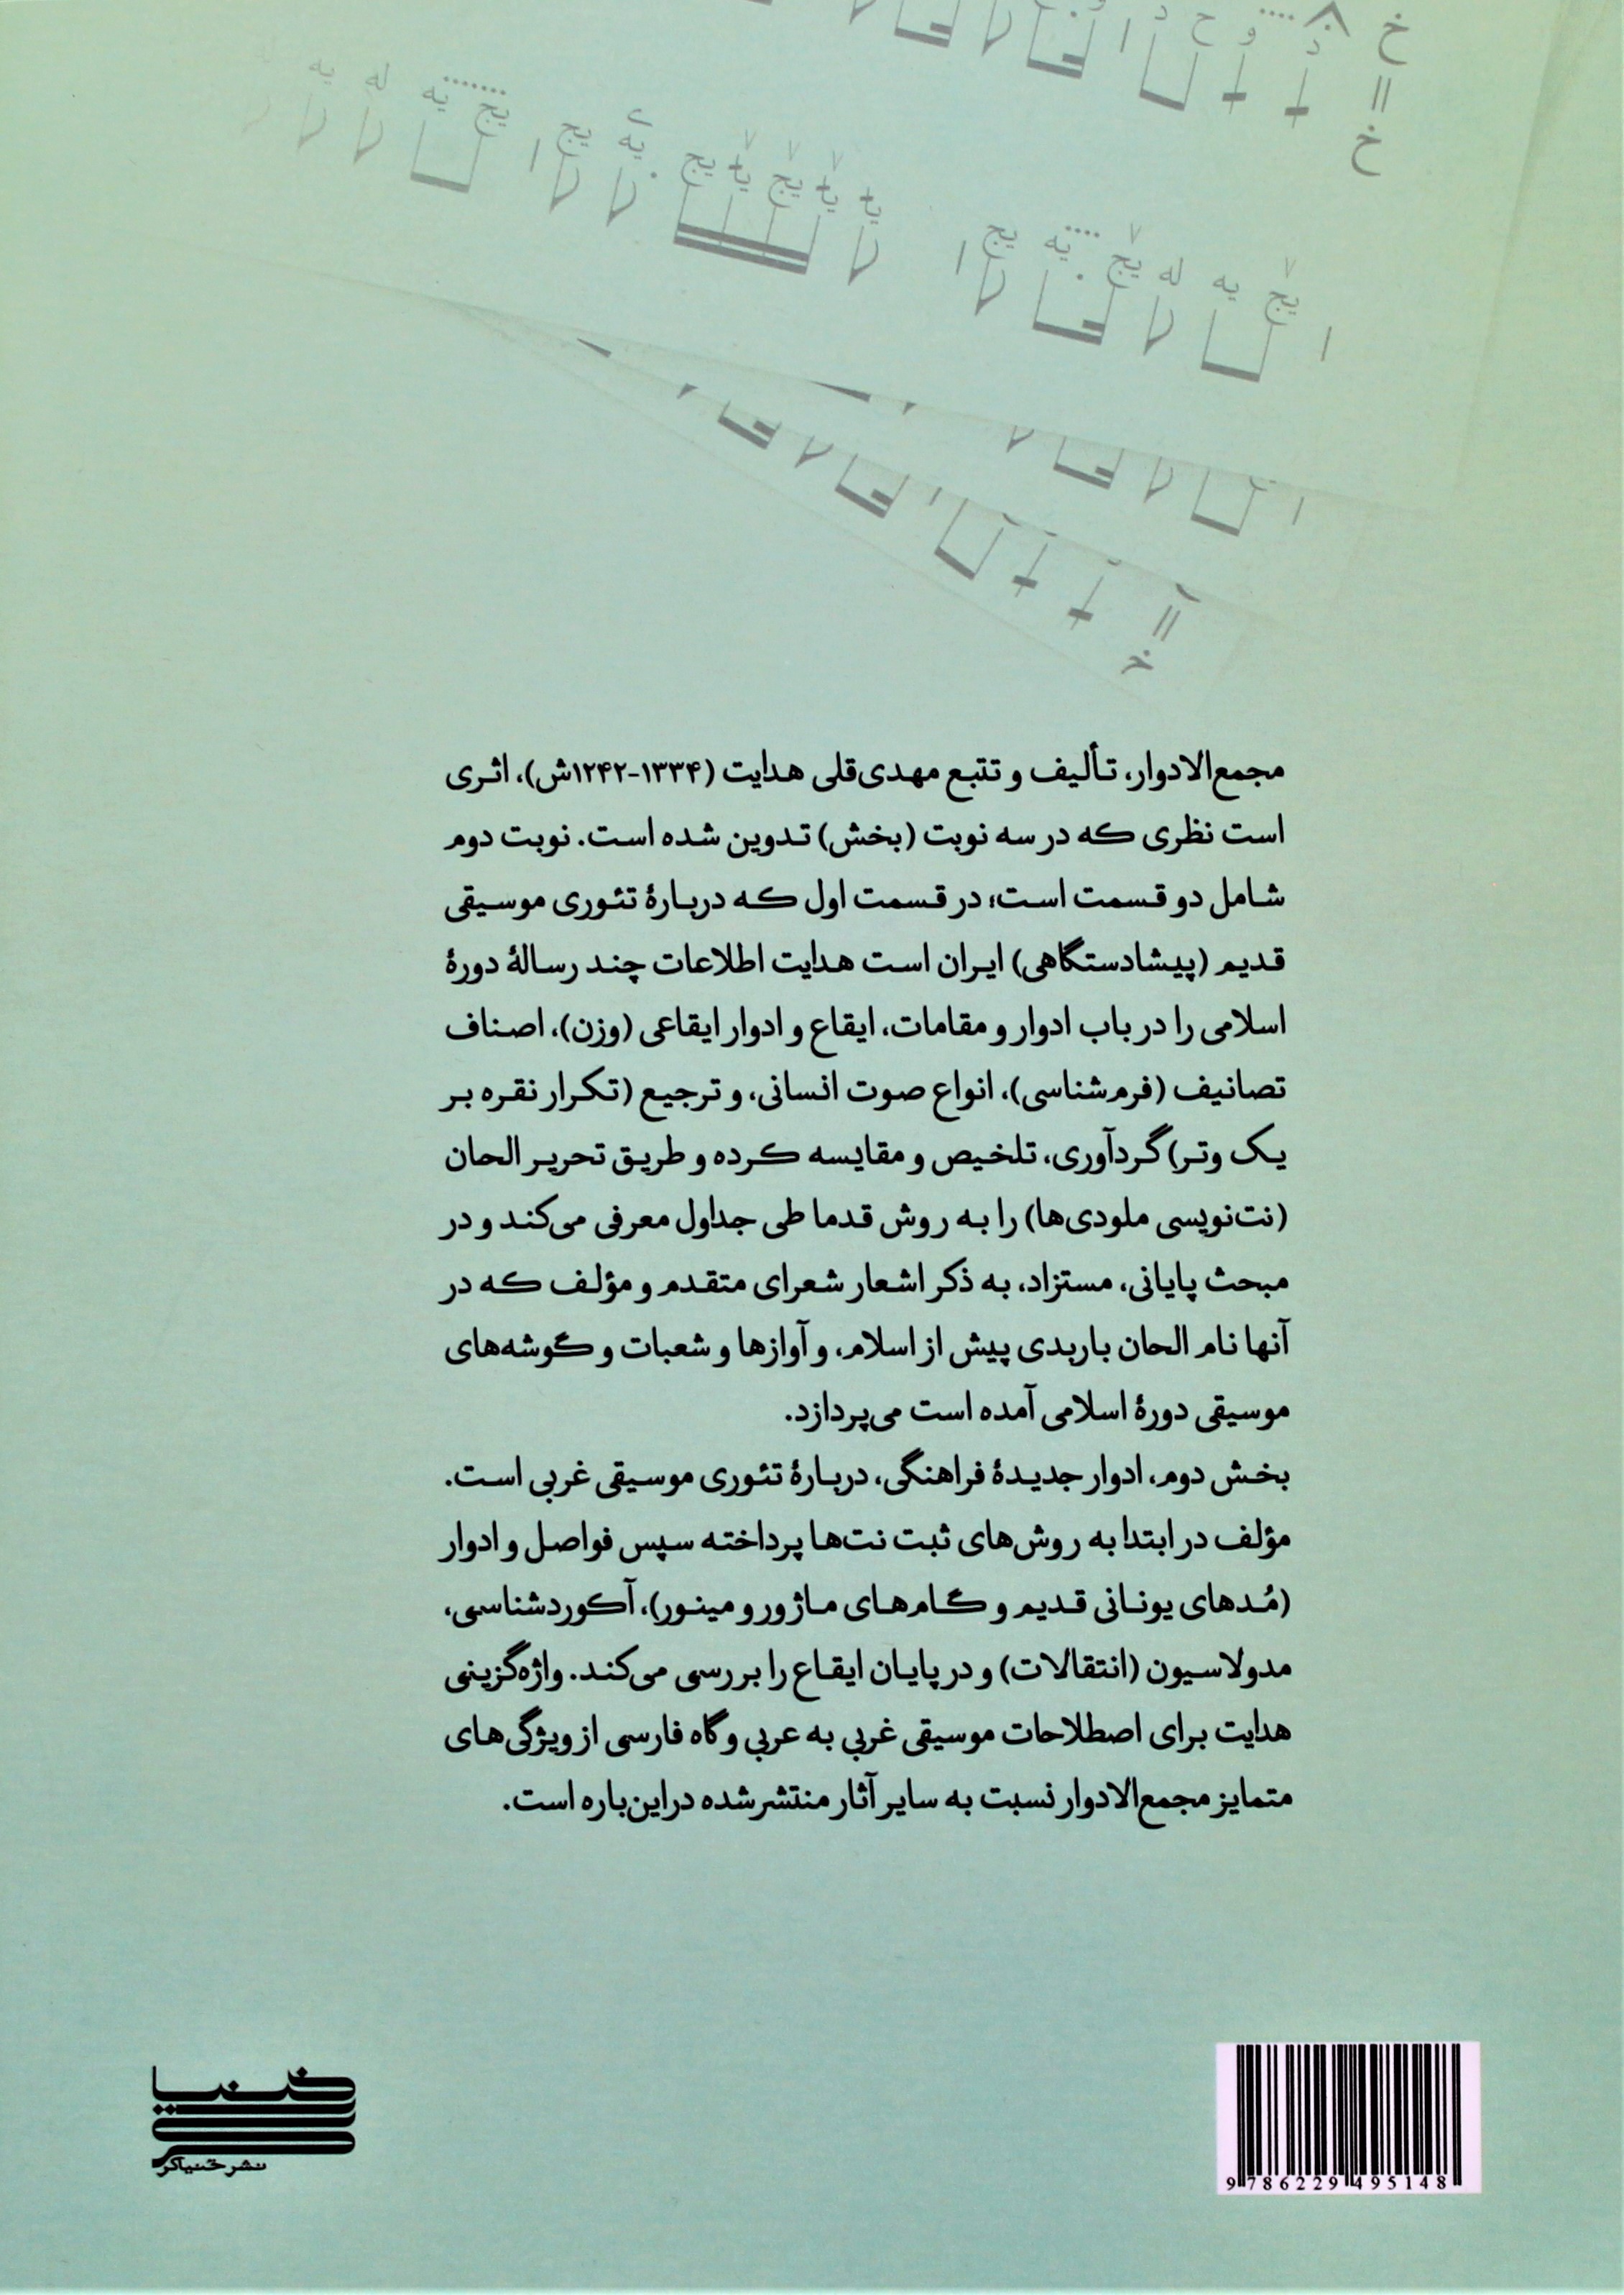 مجمع‌الادوار، تألیف و تتبع مهدی‌قلی هدایت (۱۳۳۴-۱۲۴۲ش)، اثری
است نظری که در سه نوبت (بخش) تدوین شده است. نوبت دوم
شامل دو قسمت است؛ در قسمت اول که دربارهٔ تئوری موسیقی
قدیم (پیشادستگاهی) ایران است هدایت اطلاعات چند رسالهٔ دورهٔ
اسلامی را در باب ادوار و مقامات، ایقاع و ادوار ایقاعی (وزن)، اصناف
تصانیف (فرم‌شناسی)، انواع صوت انسانی، و ترجیع (تکرار نقره بر
یک وتر) گردآوری، تلخیص و مقایسه کرده و طریق تحریر الحان
(نت‌نویسی ملودی‌ها) را به روش قدما طی جداول معرفی می‌کند و در
مبحث پایانی، مستزاد، به ذکر اشعار شعرای متقدم و مؤلف که در
آنها نام الحان باربدی پیش از اسلام، و آوازها و شعبات و گوشه‌های
موسیقی دورهٔ اسلامی آمده است می‌پردازد.
بخش دوم، ادوار جدیدهٔ فراهنگی، دربارهٔ تئوری موسیقی غربی است.
مؤلف در ابتدا به روش‌های ثبت نت‌ها پرداخته سپس فواصل و ادوار
(مُدهای یونانی قدیم و گام‌های ماژور و مینور)، آکوردشناسی،
مدولاسیون (انتقالات) و در پایان ایقاع را بررسی می‌کند. واژه‌گزینی
هدایت برای اصطلاحات موسیقی غربی به عربی و گاه فارسی از ویژگی‌های
متمایز مجمع‌الادوار نسبت به سایر آثار منتشرشده دراین‌باره است.
نشر خنیاگر
9786229495148